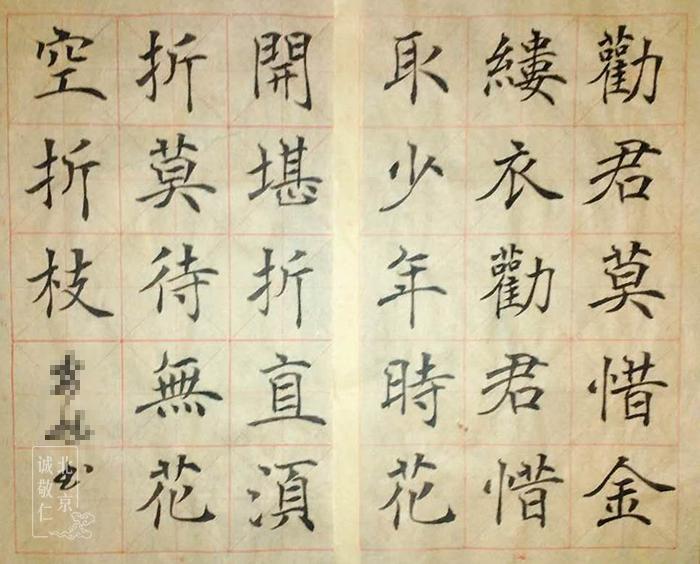 勸君莫惜金
縷衣勸君惜
取少年時花
開堪折直湏
折莫待無花
空折枝
书
北京
诚敬仁